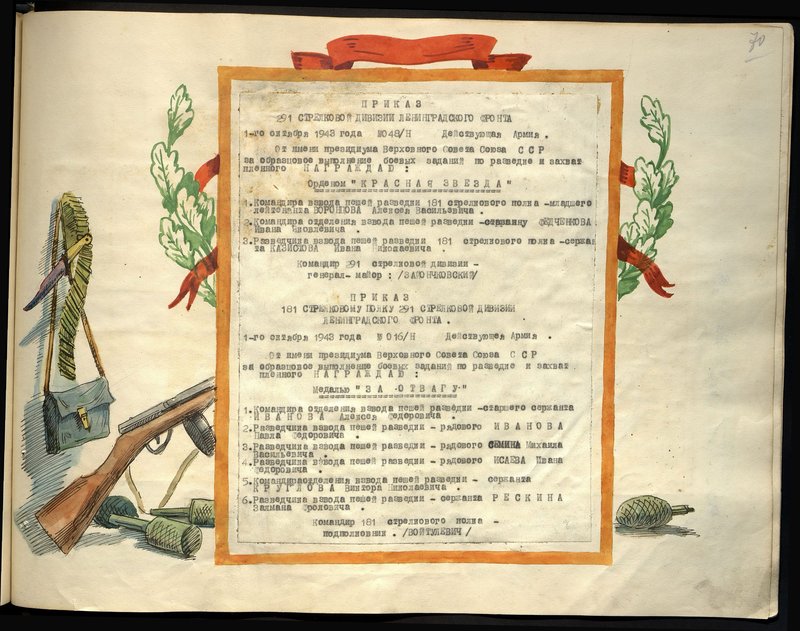 70
П Р И К А З
291 СТРЕЛКОВОЙ ДИВИЗИИ ЛЕНИНГРАДСКОГО ФРОНТА
1-го октября 1943 года №048/Н Действующая Армия .
От имени президиума Верховного Совета Союза С С Р
за образцовое выполнение боевых заданий по разведке и захват
пленного Н А Г Р А Ж Д А Ю :
Орденом "К Р А С Н А Я З В Е З Д А "
1.Командира взвода пешей разведки 181 стрелкового полка -младшего
лейтенанта ВОРОНЦОВА Алексея Васильевича .
2.Командира отделения взвода пешей разведки -старшину ФЕДЧЕНКОВА
Ивана Яковлевича .
3.Разведчика взвода пешей разведки 181 стрелкового полка -сержан
та Ивана Николаевича .
Командир 291 стрелковой дивизии -
генерал- майор : /ЗАЙОНЧКОВСКИЙ/
П Р И К А З
181 СТРЕЛКОВОМУ ПОЛКУ 291 СТРЕЛКОВОЙ ДИВИЗИИ
ЛЕНИНГРАДСКОГО ФРОНТА .
1-го октября 1943 года №016/Н Действующея Армия .
От имени президиума Верховного Совета Союза С С Р
за образцовое выполнение боевых заданий по разведке и захват
пленного Н А Г Р А Ж Д А Ю :
Медалью "З А О Т В А Г У"
1.Командира отделения взвода пешей разведки -старшего сержанта
И В А Н О В А Алексея Федоровича .
2.Разведчика взвода пешей разведки - рядового И В А Н О В А
Павла Федоровича .
3.Разведчика взвода пешей разведки - рядового СЕМИНА Михаила
Васильевича .
4.Разведчика взвода пешей разведки - рядового ИСАЕВА Ивана
Федоровича .
5.Командираотделения взвода пешей разведки - сержанта
К Р У Г Л О В А Виктора Николаевича .
6.Разведчика взвода пешей разведки - сержанта Р Е С К И Н А
Залмана Фроловича .
Командир 181 стрелкового полка -
подполковник . /ВОЙТУЛЕВИЧ/